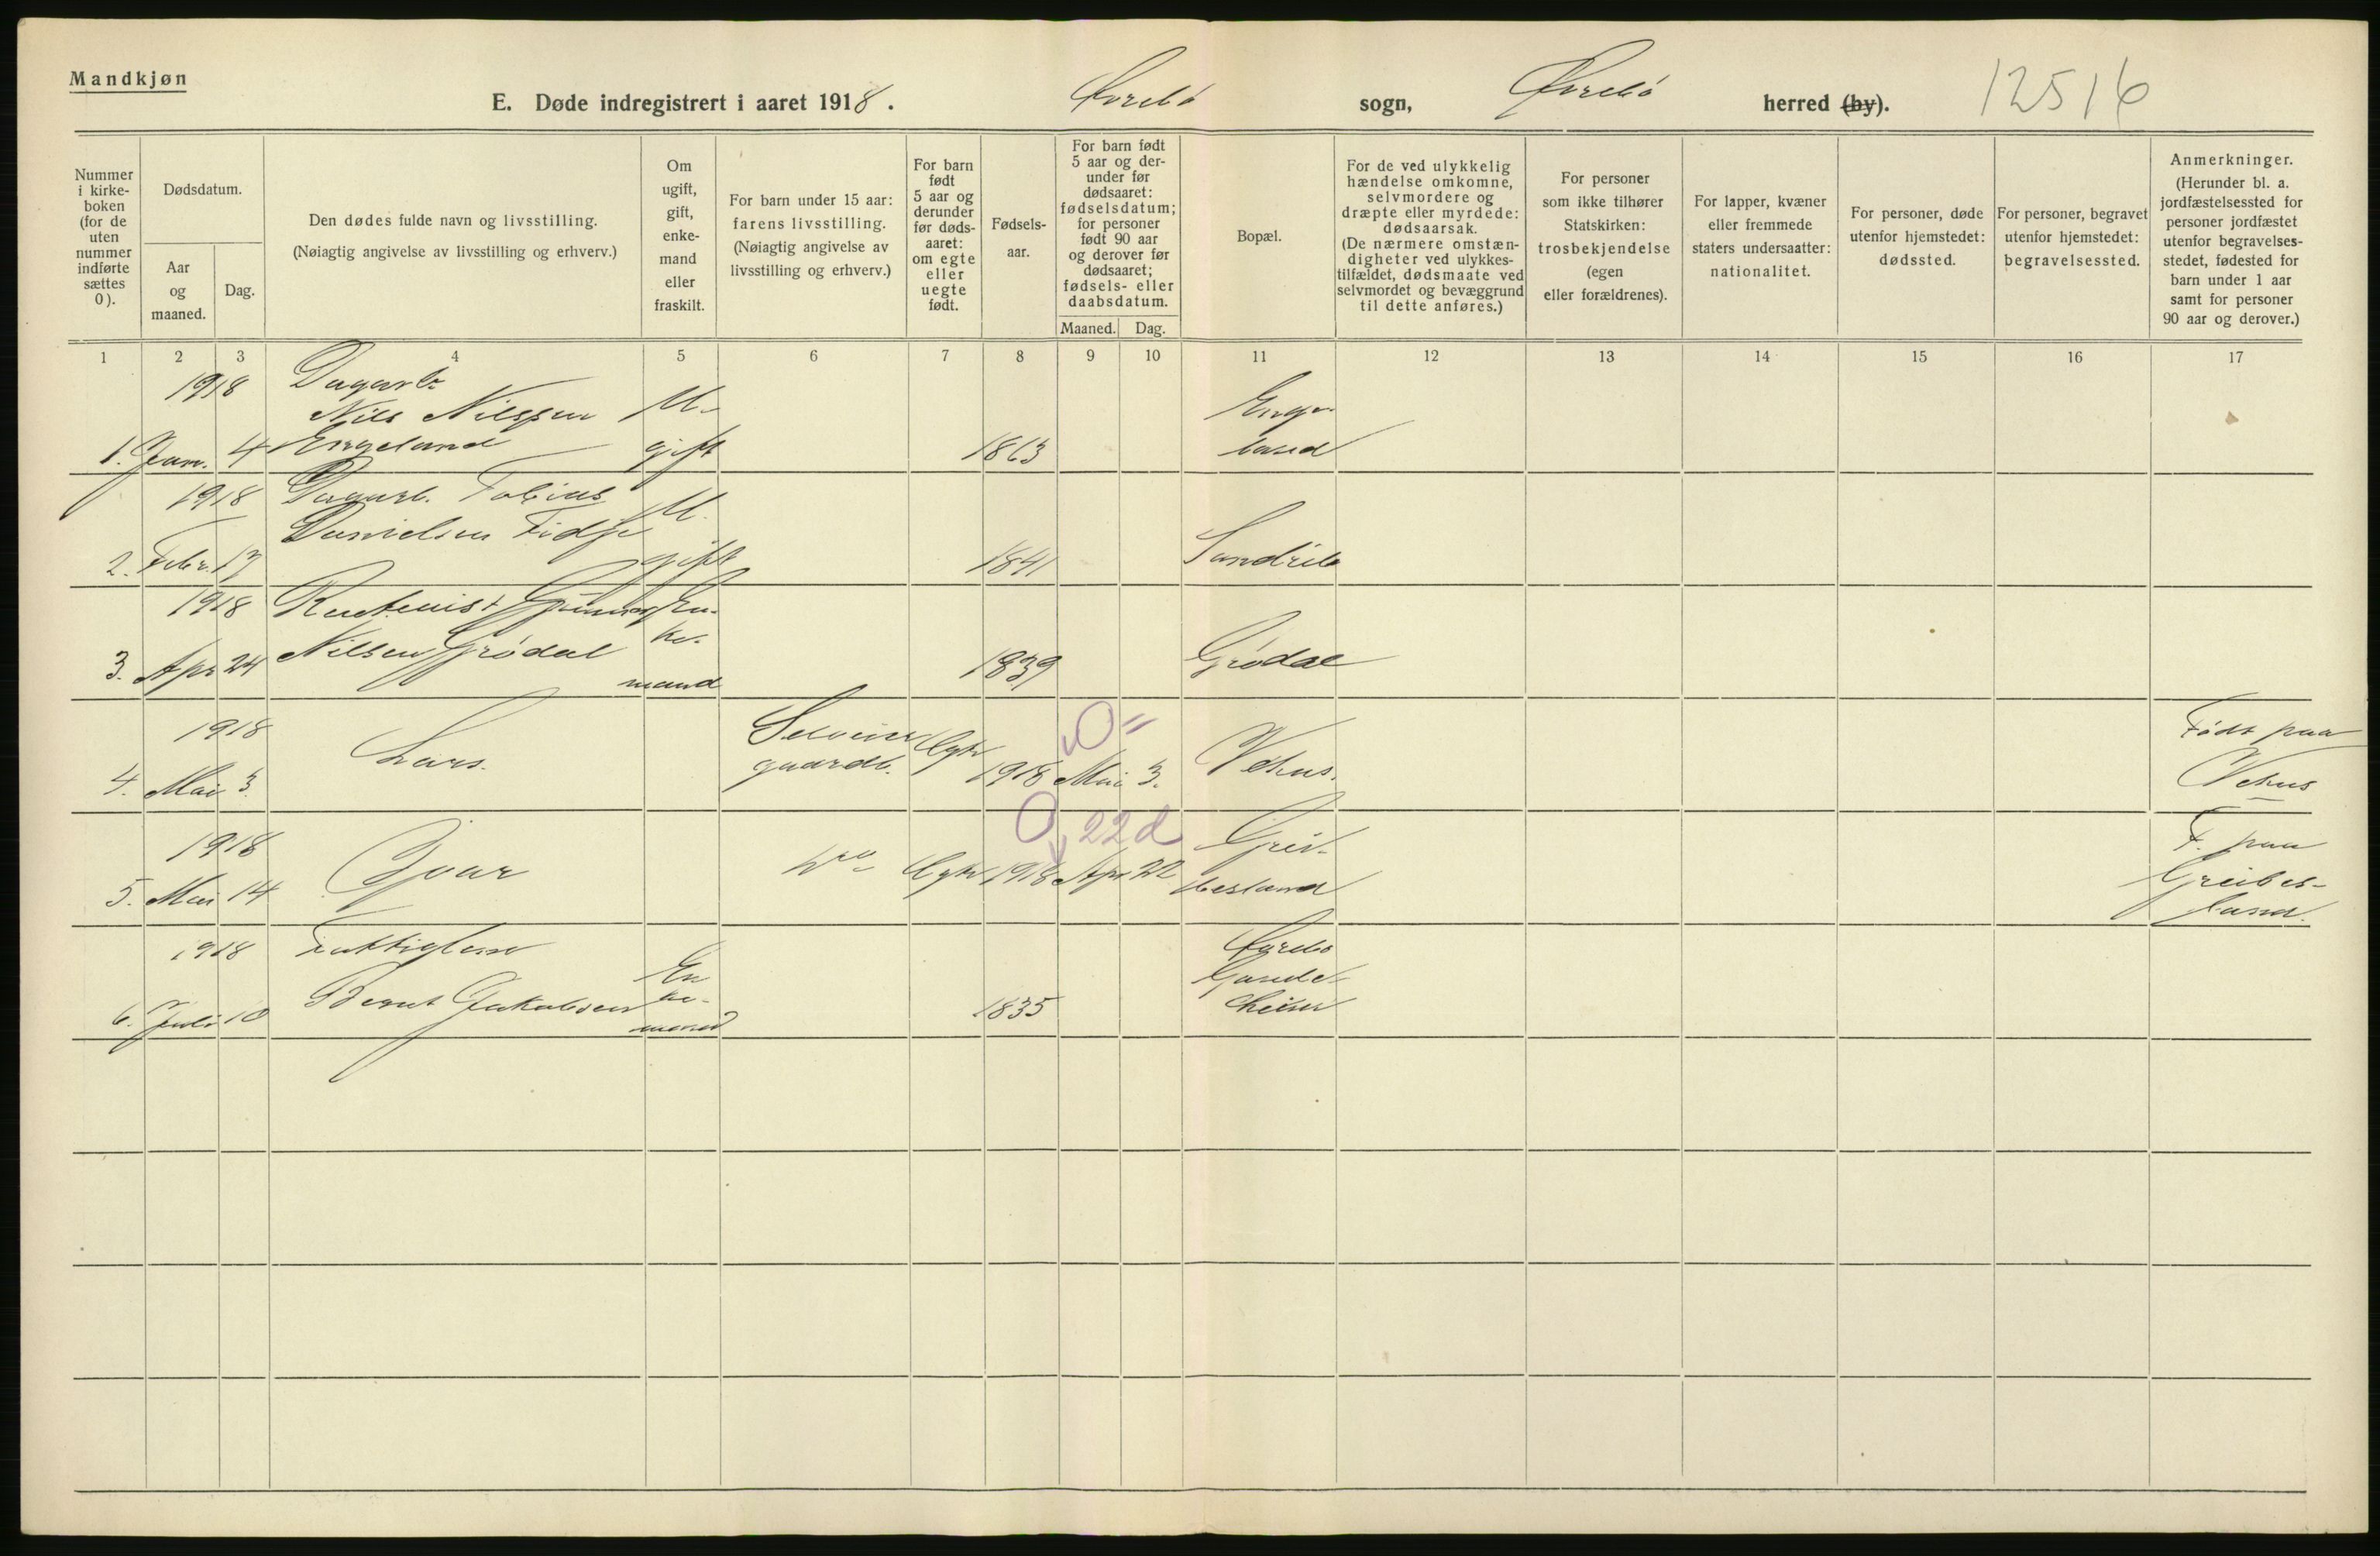 Mandkjøn
E. Døde indregistrert i aaret 1918. Øvrebø sogn, Øvrebø herred (by). 12516
Nummer i kirkeboken (for de uten nummer indførte sættes 0).
Dødsdatum.
Aar og maaned.
Dag.
Den dødes fulde navn og livsstilling.
(Nøiagtig angivelse av livsstilling og erhverv.)
Om ugift, gift, enkemand eller fraskilt.
For barn under 15 aar: farens livsstilling.
(Nøiagtig angivelse av livsstilling og erhverv.)
For barn født 5 aar og derunder før dødsaaret: om egte eller uegte født.
Fødselsaar.
For barn født 5 aar og derunder før dødsaaret: fødselsdatum; for personer født 90 aar og derover før dødsaaret; fødsels- eller daabsdatum.
Maaned. Dag.
Bopæl.
For de ved ulykkelig hændelse omkomne, selvmordere og dræpte eller myrdede: dødsaarsak.
(De nærmere omstændigheter ved ulykkestilfældet, dødsmaate ved selvmordet og bevæggrund til dette anføres.)
For personer som ikke tilhører Statskirken: trosbekjendelse (egen eller forældrenes).
For lapper, kvæner eller fremmede staters undersaatter: nationalitet.
For personer, døde utenfor hjemstedet: dødssted.
For personer, begravet utenfor hjemstedet: begravelsessted.
Anmerkninger.
(Herunder bl. a. jordfæstelsessted for personer jordfæstet utenfor begravelsesstedet, fødested for barn under 1 aar samt for personer 90 aar og derover.)
1 2 3 4 5 6 7 8 9 10 11 12 13 14 15 16 17
1918 Dagarb.
Nils Nilssen U- Enge-
1. Jan. 4 Engeland gift 1863 land
1918 Dagarb. Tobias
Danielsen Fidje U.
2. Febr. 17 gift 1841
1918 Gunder En-
Nilsen Grødal ke-
3. Apr 24 mand 1839 Grødal
1918 Selveier 0 Født paa
4. Mai 3. Lars. gaardb. Egte 1918 Mai 3. Vehus. Vehus
1918 0 22 d Grei- F. paa
5. Mai 14 Ivar Egte 1918 Apr 22 besland Greibes-
land.
1918 Fattiglem En Øvrebø
Bernt Jakobsen ke- Gamle-
6. Juli 10 mand 1835 heim